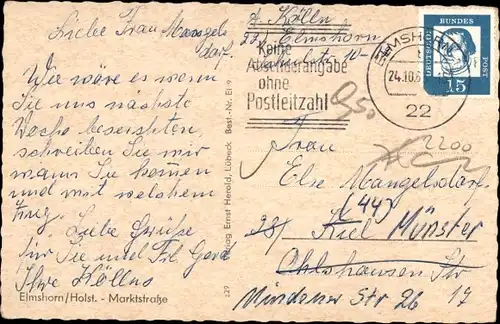 Liebe Frau Mangels
dorf.
Wie wäre es wenn
Sie uns nächste
Woche besuchten,
schreiben Sie mir
wann Sie kommen
und mit welchem
Zug.
Liebe Grüße
für Sie und Frl Gerd
Ihre Köllns
Elmshorn/Holst. - Marktstraße
229 Verlag Ernst Herold, Lübeck Best.-Nr. El 9
Kölln
22 Elmshorn
Keine
Absenderangabe
ohne
Postleitzahl
ELMSHORN
24.10.6
22
DEUTSCHE BUNDES POST
15
0,50
2200
Frau
Else Mangelsdorf
(44)
23/ Kiel Münster
Ohlshausen Str
Mindener Str 26 17